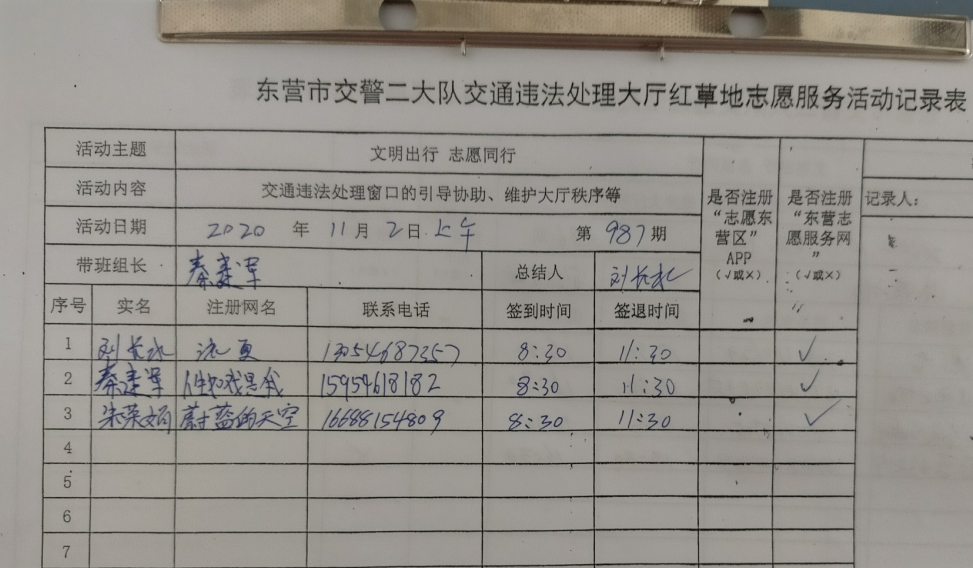 东营市交警二大队交通违法处理大厅红草地志愿服务活动记录表
活动主题 文明出行 志愿同行
活动内容 交通违法处理窗口的引导协助、维护大厅秩序等
活动日期 2020 年 11 月 2 日 上午 第 987 期
是否注册“志愿东营区”APP(√或×)
是否注册“东营志愿服务网”(√或×)
记录人:
带班组长 秦建军 总结人 刘长水
序号 实名 注册网名 联系电话 签到时间 签退时间
1 刘长水 13054687357 8:30 11:30 √
2 秦建军 15954618182 8:30 11:30 √
3 朱荣娟 蔚蓝的天空 16688154809 8:30 11:30 √
4
5
6
7